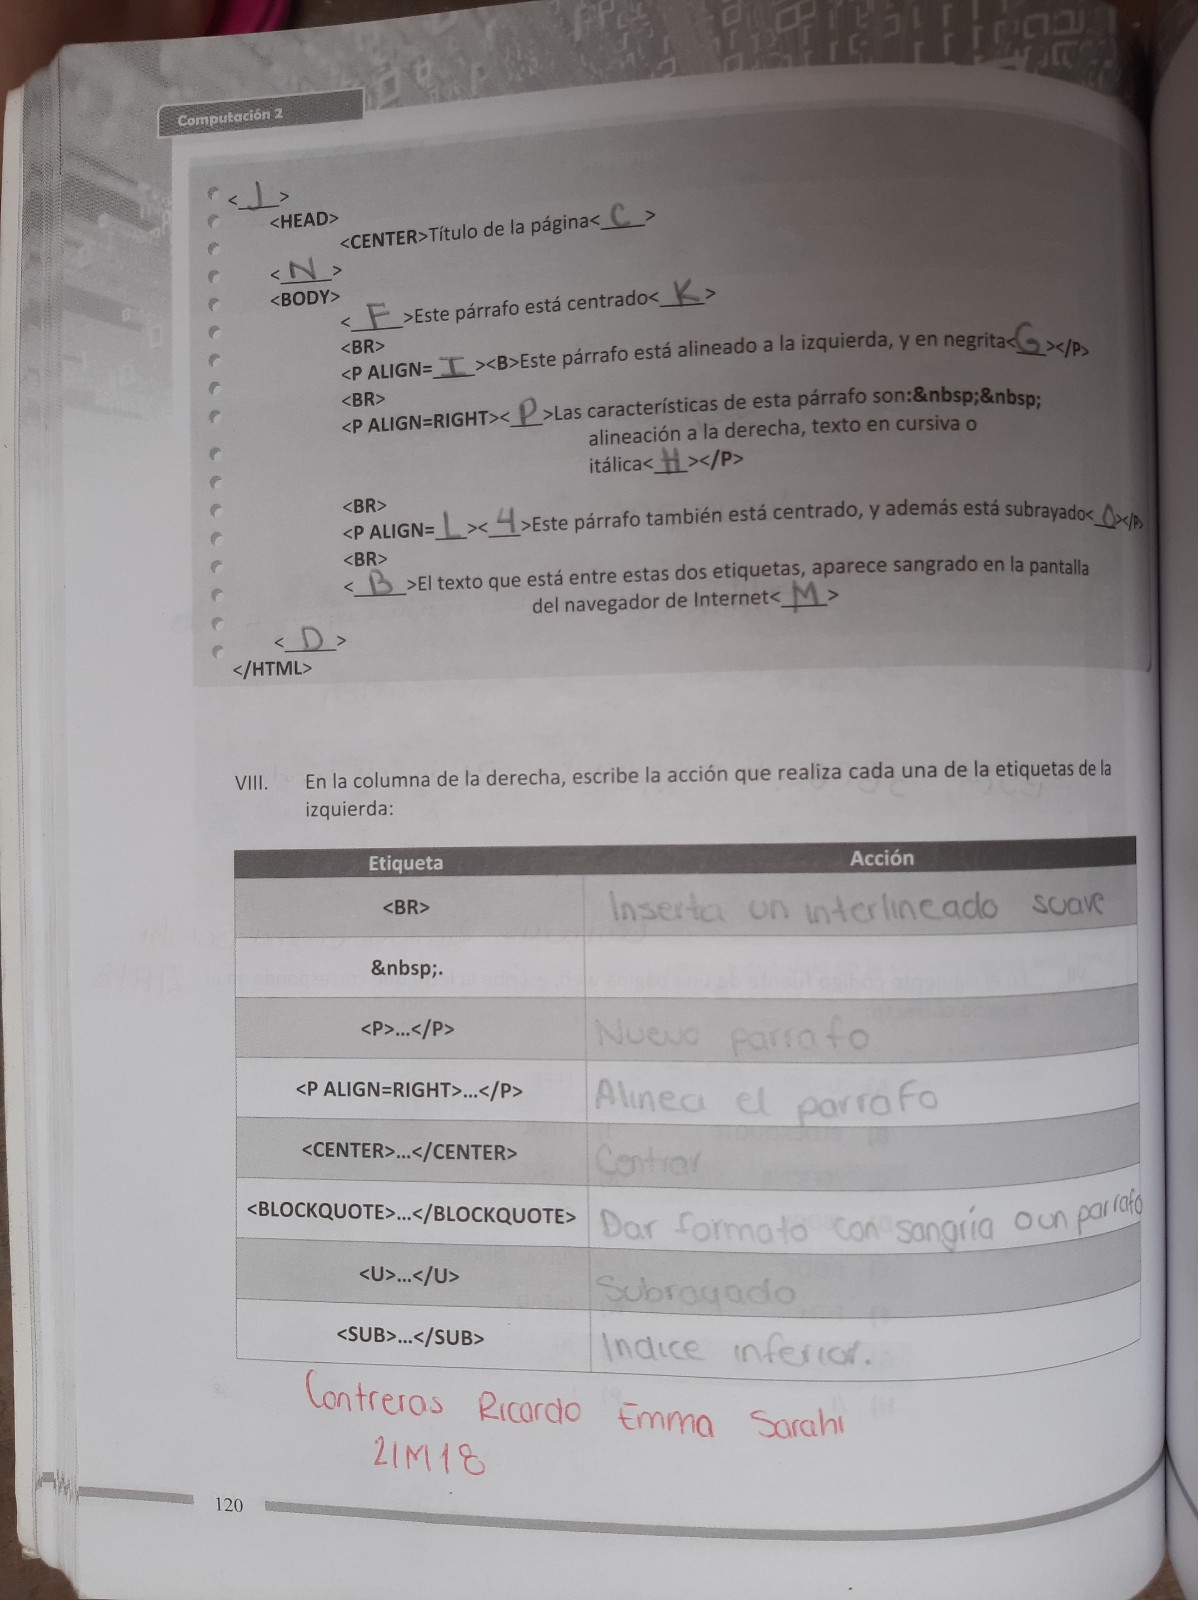 Computación 2
<J>
<HEAD>
<CENTER>Título de la página<C>
<N>
<BODY>
<F>Este párrafo está centrado<K>
<BR>
<P ALIGN=I><B>Este párrafo está alineado a la izquierda, y en negrita<G></P>
<BR>
<P ALIGN=RIGHT><P>Las características de esta párrafo son:&nbsp;&nbsp;
alineación a la derecha, texto en cursiva o
itálica<H></P>
<BR>
<P ALIGN=L><4>Este párrafo también está centrado, y además está subrayado<O></P>
<BR>
<B>El texto que está entre estas dos etiquetas, aparece sangrado en la pantalla
del navegador de Internet<M>
<D>
</HTML>
VIII. En la columna de la derecha, escribe la acción que realiza cada una de la etiquetas de la
izquierda:
Etiqueta Acción
<BR> Inserta un interlineado suave
&nbsp;.
<P>...</P> Nuevo parrafo
<P ALIGN=RIGHT>...</P> Alinea el parrafo
<CENTER>...</CENTER> Centrar
<BLOCKQUOTE>...</BLOCKQUOTE> Dar formato con sangría a un parrafo
<U>...</U> Subrayado
<SUB>...</SUB> Indice inferior.
Contreras Ricardo Emma Sarahi
21M18
120